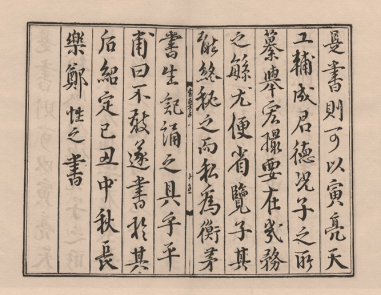 是書則可以寅亮天
工輔成君德況子之所
纂舉宏撮要在幾務
之緐尤便省覽子其
能終秘之而私為衡茅
書生記誦之具乎平
甫曰不敢遂書於其
后紹定己丑中秋長
樂鄭性之書